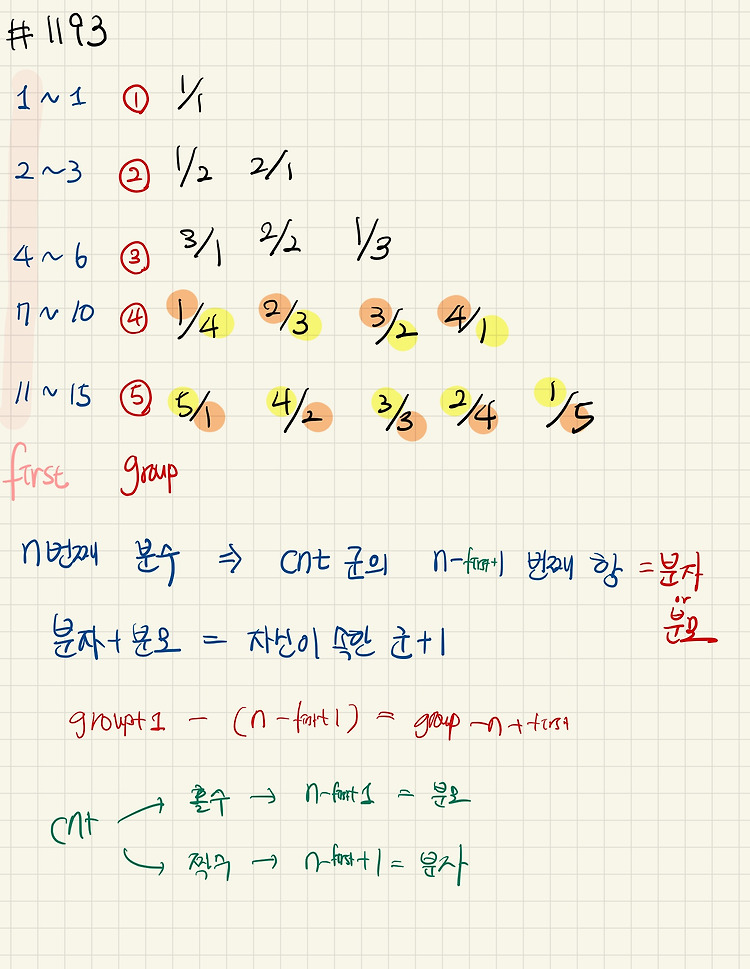 #1193
1 ~ 1 ① 1/1
2 ~ 3 ② 1/2 2/1
4 ~ 6 ③ 3/1 2/2 1/3
7 ~ 10 ④ 1/4 2/3 3/2 4/1
11 ~ 15 ⑤ 5/1 4/2 3/3 2/4 1/5
first group
n번째 분수 ⇒ cnt 군의 n-first+1 번째 항 = 분자
or
분모
분자+분모 = 자신이 속한 군+1
group+1 - (n-first+1) = group-n+first
cnt
홀수 → n-first+1 = 분모
짝수 → n-first+1 = 분자